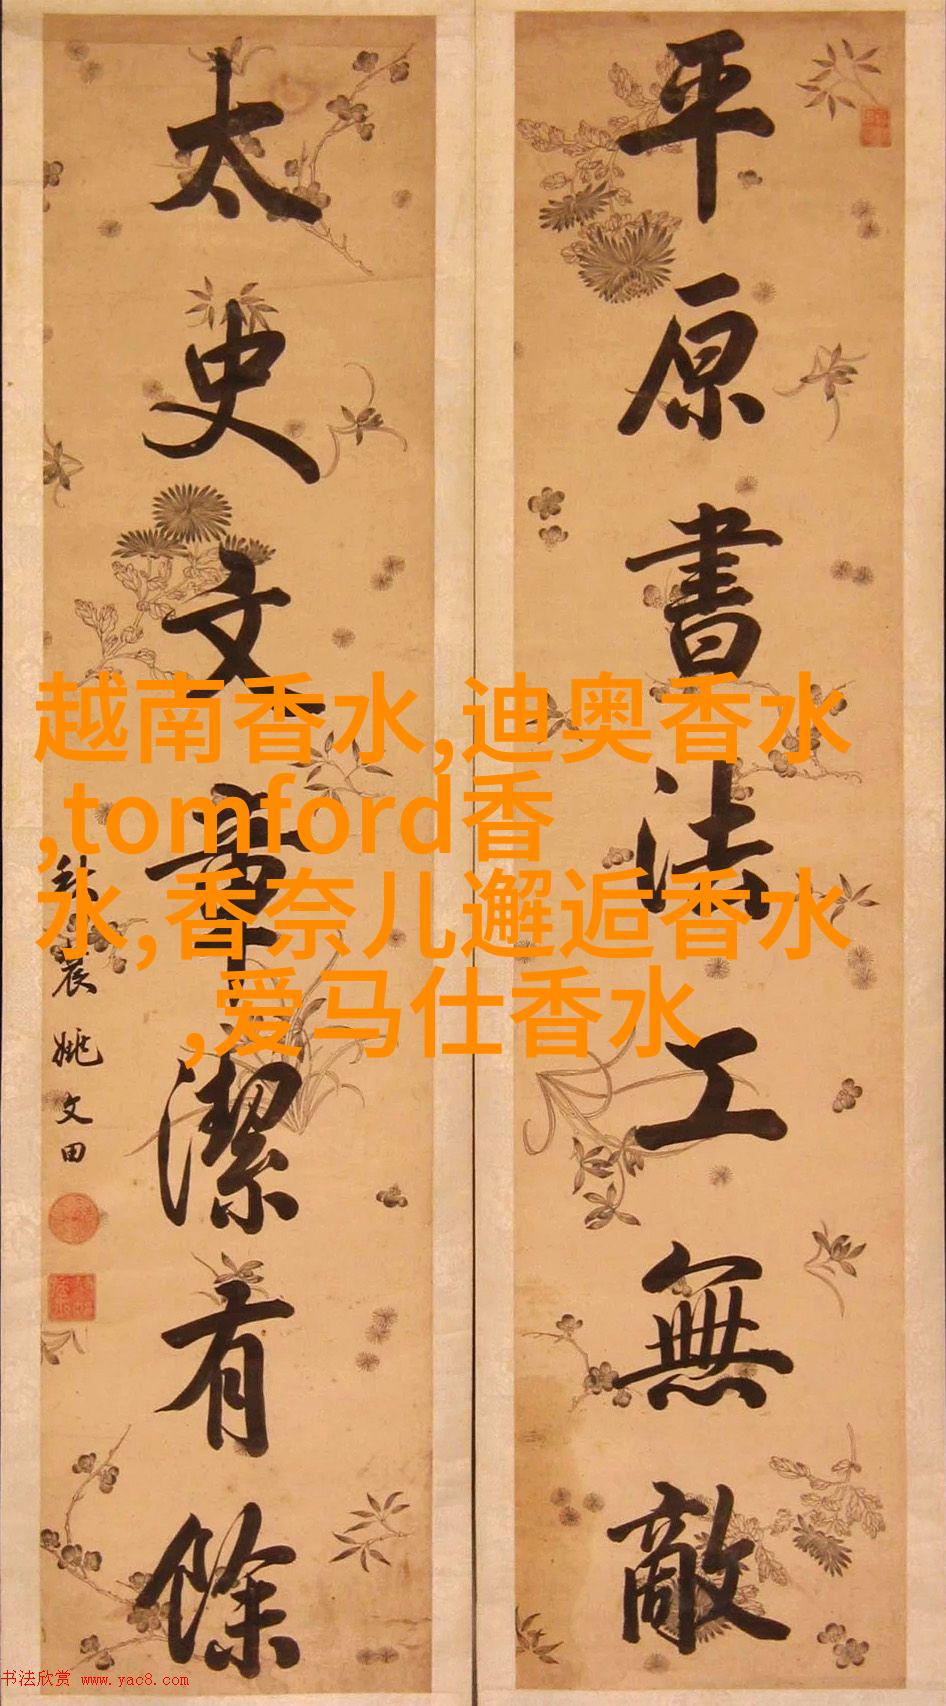 平原書法工無敵
太史文章潔有餘
姚文田
越南香水,迪奥香水
,tomford香
水,香奈儿邂逅香水
,爱马仕香水
书法欣赏 www.yac8.com